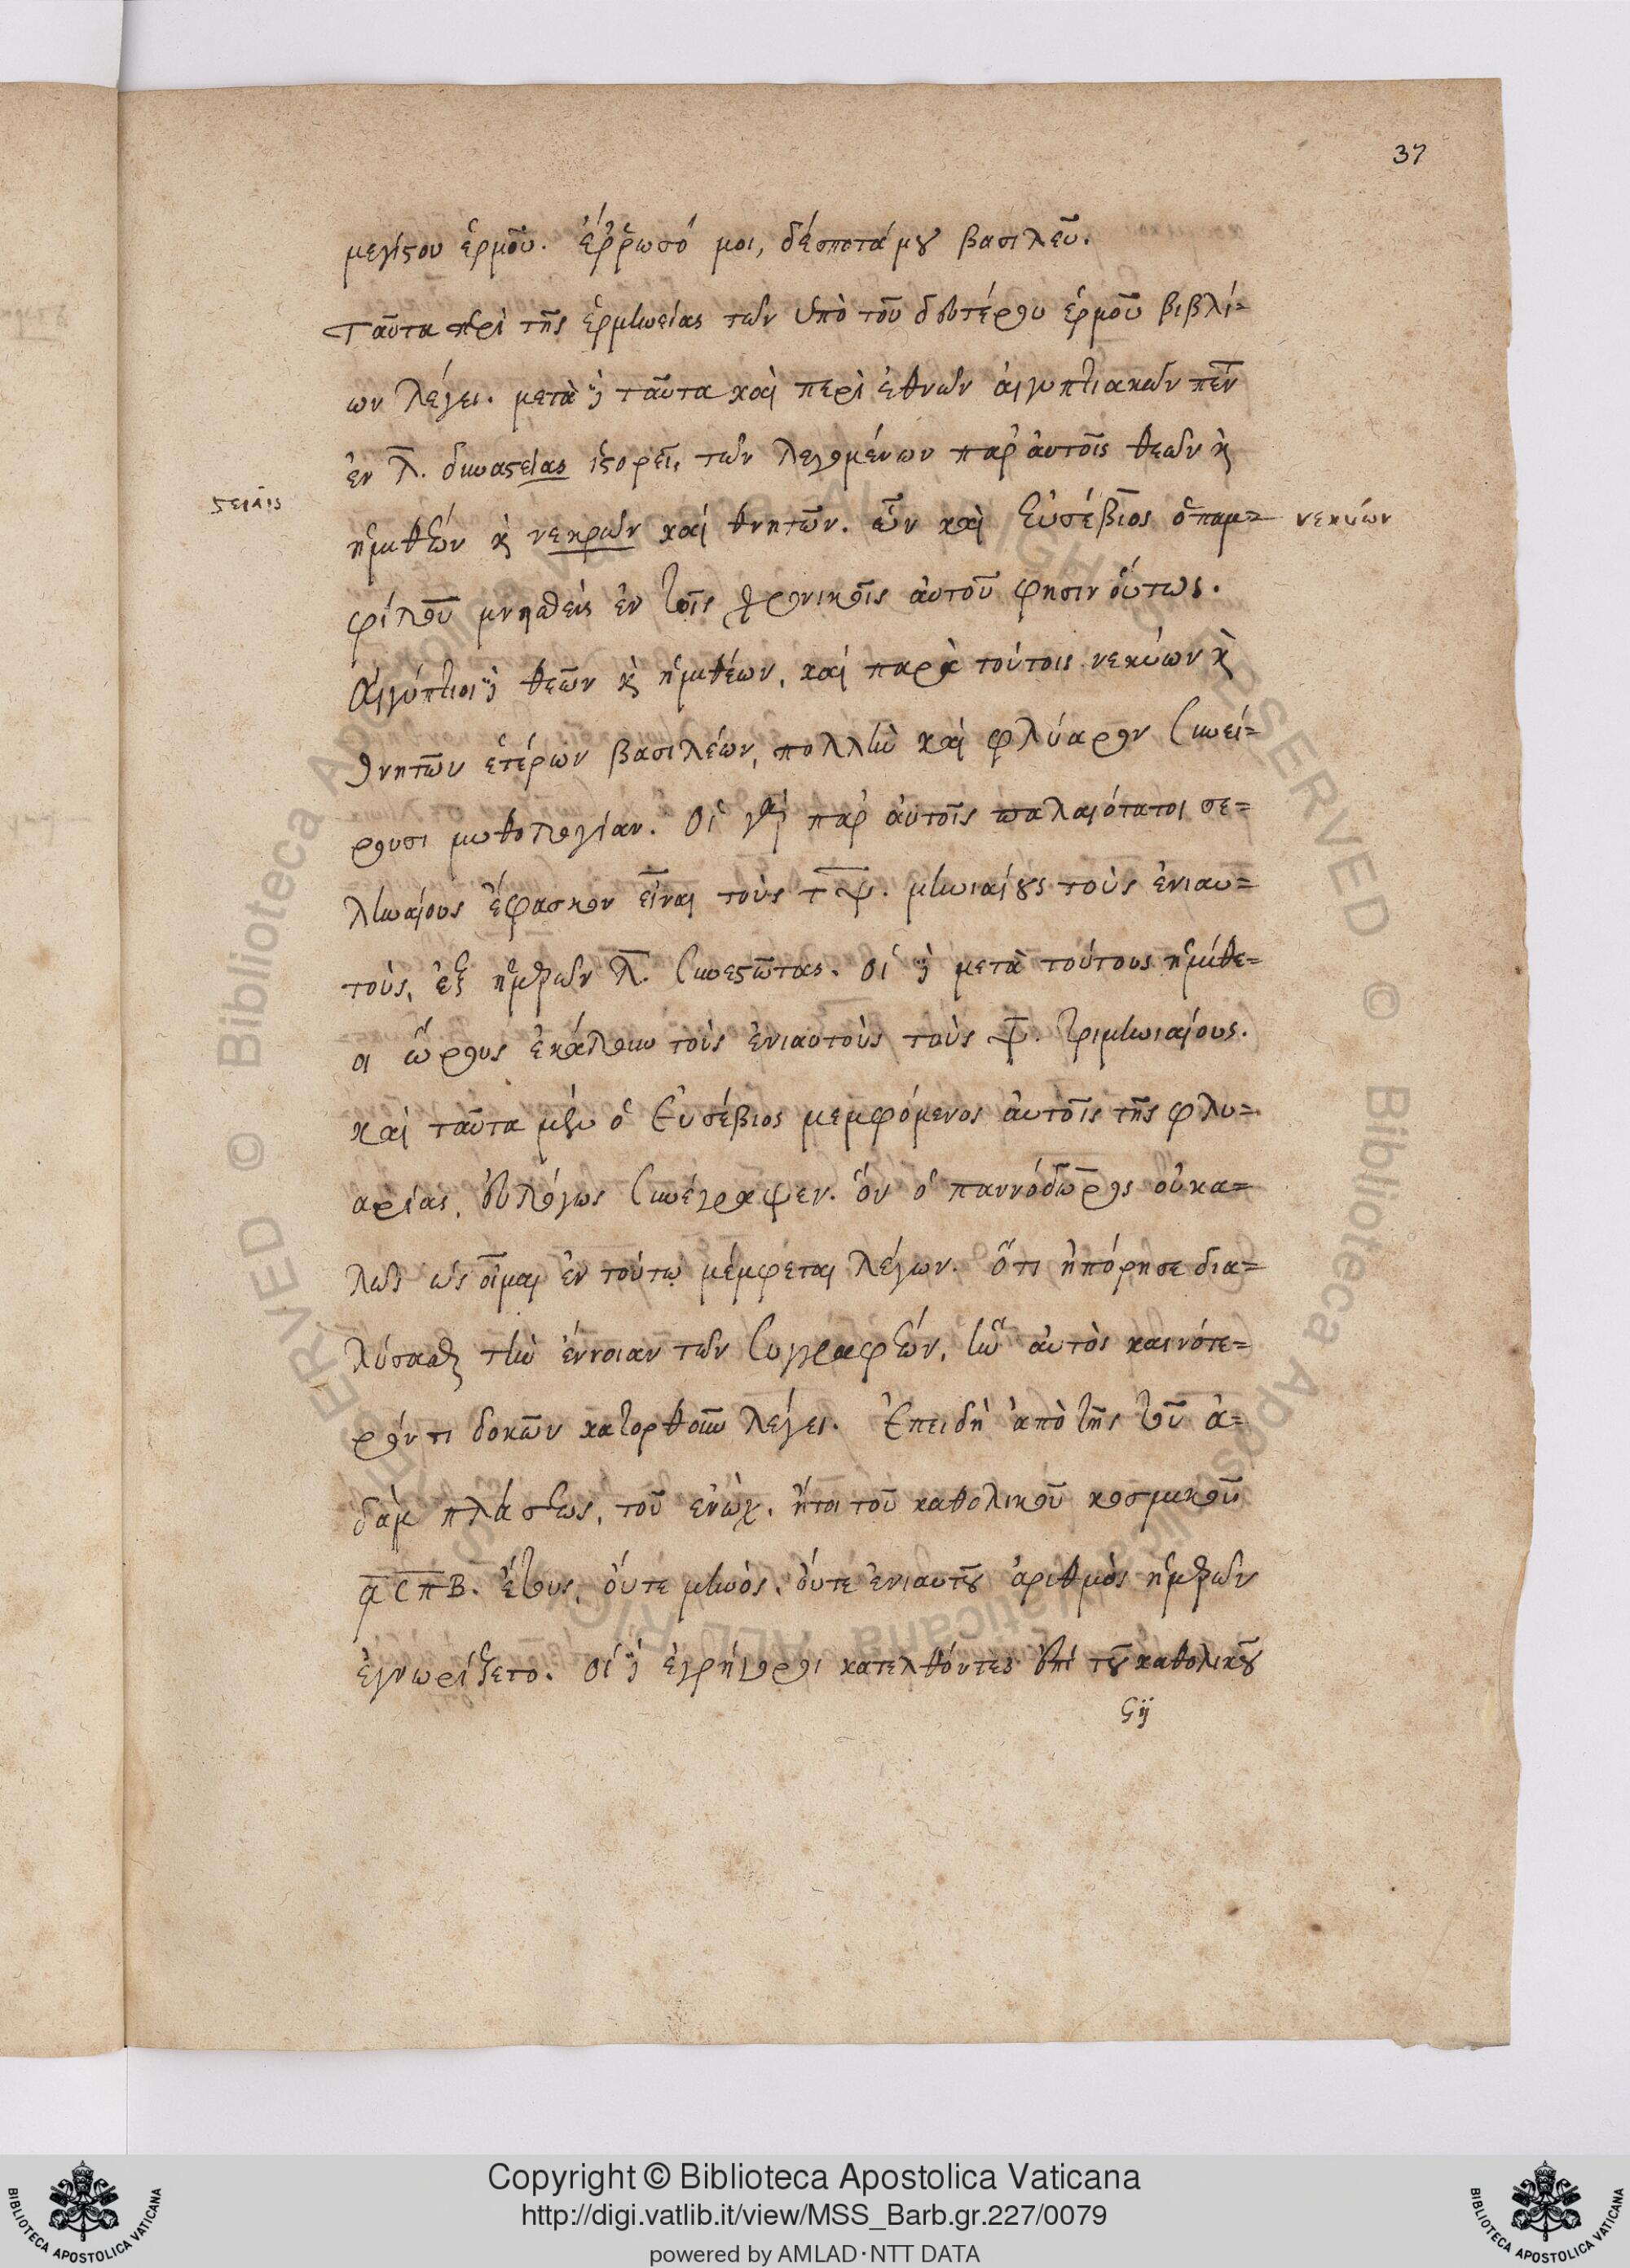 37
μεγίστου ἑρμοῦ. ἔῤῥωσό μοι, δέσποτά μου βασιλεῦ.
Ταῦτα περὶ τῆς ἑρμηνείας τῶν ὑπὸ τοῦ δευτέρου ἑρμοῦ βιβλί=
ων λέγει. μετὰ δὲ ταῦτα καὶ περὶ ἐθνῶν αἰγυπτιακῶν πέντε
ἐν λ. δυναστείας ἱστορεῖ, τῶν λεγομένων παρ' αὐτοῖς θεῶν καὶ
στείαις
ἡμιθέων καὶ νεκρῶν καὶ θνητῶν. ὧν καὶ Εὐσέβιος ὁ παμ=
νεκύων
φίλου μνησθεὶς ἐν τοῖς χρονικοῖς αὐτοῦ φησιν οὕτως.
Αἰγύπτιοι δὲ θεῶν καὶ ἡμιθέων, καὶ παρὰ τούτοις νεκύων καὶ
θνητῶν ἑτέρων βασιλέων, πολλὴν καὶ φλύαρον συνεί=
ρουσι μυθολογίαν. Οἱ γὰρ παρ' αὐτοῖς παλαιότατοι σε=
ληναίους ἔφασκον εἶναι τοὺς τψ. μηνιαίους τοὺς ἐνιαυ=
τοὺς, ἐξ ἡμερῶν λ. συνεστῶτας. Οἱ δὲ μετὰ τούτους ἡμίθε=
οι ὥρους ἐκάλουν τοὺς ἐνιαυτοὺς τοὺς ψ. τριμηνιαίους.
καὶ ταῦτα μὲν ὁ Εὐσέβιος μεμφόμενος αὐτοῖς τῆς φλυ=
αρίας, εὐλόγως συνέγραψεν. ὃν ὁ παννόδωρος οὐ κα=
λῶς ὡς οἶμαι ἐν τούτῳ μέμφεται λέγων. ὅτι ἠπόρησε δια=
λύσασθαι τὴν ἔννοιαν τῶν συγγραφέων, ἣν αὐτὸς καινότε=
ρόν τι δοκῶν κατορθοῦν λέγει. Ἐπειδὴ ἀπὸ τῆς τοῦ ἀ=
δὰμ πλάσεως, τοῦ ἐνὼχ, ἤτοι τοῦ καθολικοῦ κοσμικοῦ
ασπβ. ἔτους, οὔτε μηνὸς, οὔτε ἐνιαυτοῦ ἀριθμὸς ἡμερῶν
ἐγνωρίζετο. Οἱ δὲ ἐγρήγοροι κατελθόντες ἐπὶ τοῦ καθολικοῦ
Gij
Copyright © Biblioteca Apostolica Vaticana
http://digi.vatlib.it/view/MSS_Barb.gr.227/0079
powered by AMLAD·NTT DATA
BIBLIOTECA APOSTOLICA VATICANA
BIBLIOTECA APOSTOLICA VATICANA